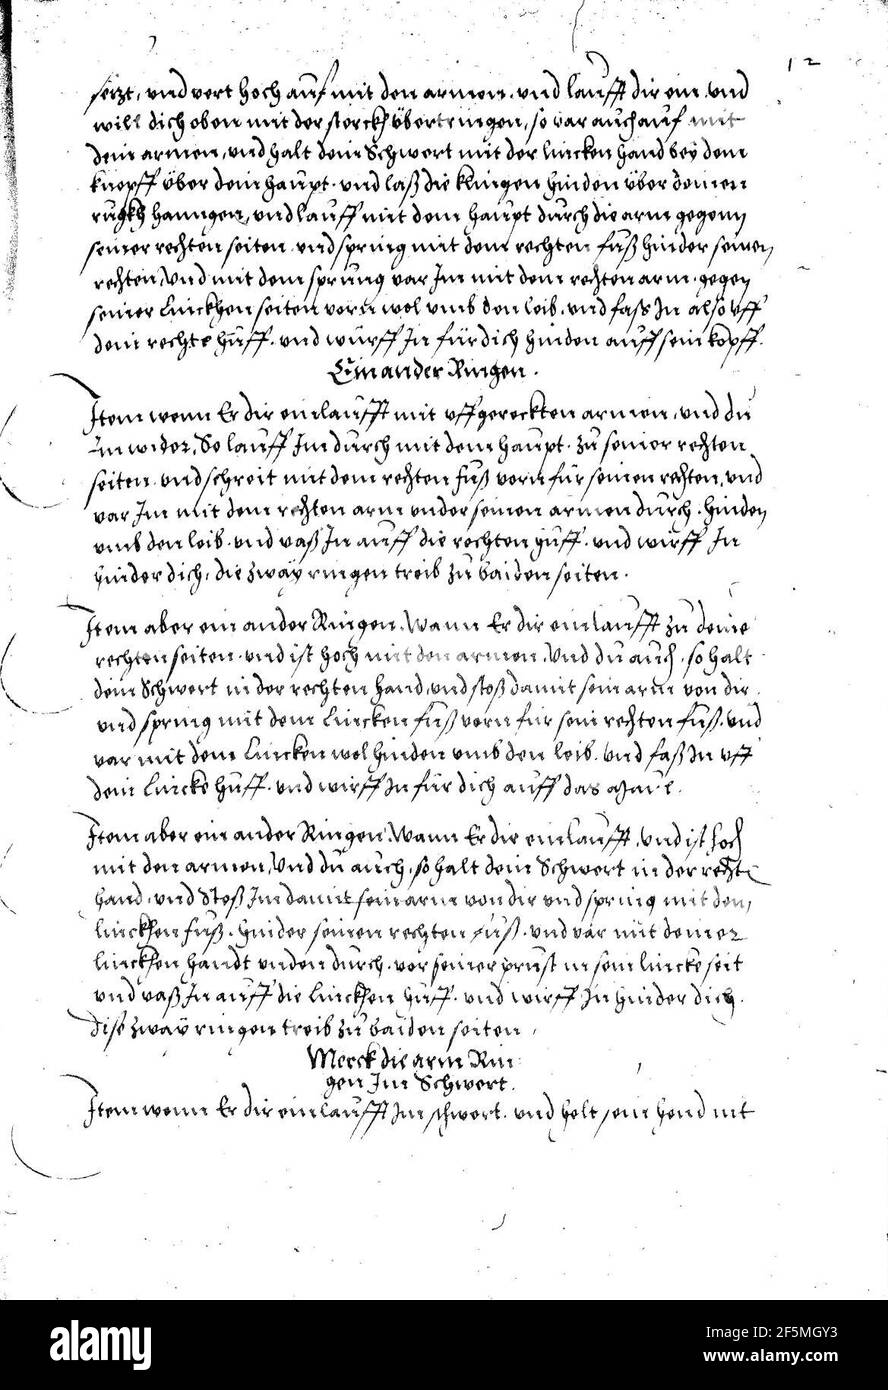 12
setzt, vnd vert hoch auf mit den armen. vnd laufft dir ein. vnd
will dich oben mit der sterckh übertringen, so var auch auf mit
dein armen, vnd halt dein Schwert mit der lincken hand bey dem
knopff über dein haupt. vnd laß die klingen hinden über deinen
rugkh hanngen, vnd lauff mit dem haupt durch die arm gegenn
seiner rechten seiten. vnd spring mit dem rechten fuß hinder seinen
rechten, Vnd mit dem sprung var Im mit dem rechten arm. gegen
seiner Linckhen seiten vorn wol vmb den leib. vnd fass In also vff
dein rechte hüff. vnd würff In für dich hinden auff sein kopff.
Ein ander Ringen.
Item wenn Er dir einlaufft mit vffgereckten armen, vnd du
Im wider, So lauff Im durch mit dem haupt. zu seiner rechten
seiten. vnd schreit mit dem rechten fuß vorn für seinen rechten, vnd
var Im mit dem rechten arm vnder seinen armen durch. hinden
vmb den leib. vnd vaß In auff die rechten huff. vnd wirff In
hinder dich, die zway ringen treib zu baiden seiten.
Item aber ein ander Ringen, Wann Er dir einlaufft zu deine
rechten seiten. vnd ist hoch mit den armen, Vnd du auch. so halt
dein Schwert in der rechten hand, vnd stoß damit sein arm von dir.
vnd spring mit dem Lincken fuß vorn für sein rechten fuß. vnd
var mit dem Lincken wol hinden vmb den leib. vnd faß In vff
dein Lincke huff. vnd wirff In für dich auff das maul.
Item aber ein ander Ringen, Wann Er dir einlaufft, vnd ist hoch
mit den armen, Vnd du auch, so halt dein Schwert in der rechte
hand. vnd Stoß Im damit sein arm von dir vnd spring mit den
linckhen fuß. hinder seinen rechten fuß. vnd var mit deiner
linckhen handt vnden durch. vor seiner prust in sein lincke seit
vnd vaß In auff die linckhen huff. vnd wirff In hinder dich.
dise zway ringen treib zu baiden seiten.
Merck die arm Rin
gen Im Schwert.
Item wenn Er dir einlaufft Im schwert. vnd helt sein hend mit
alamy
Image ID: 2F5MGY3
www.alamy.com